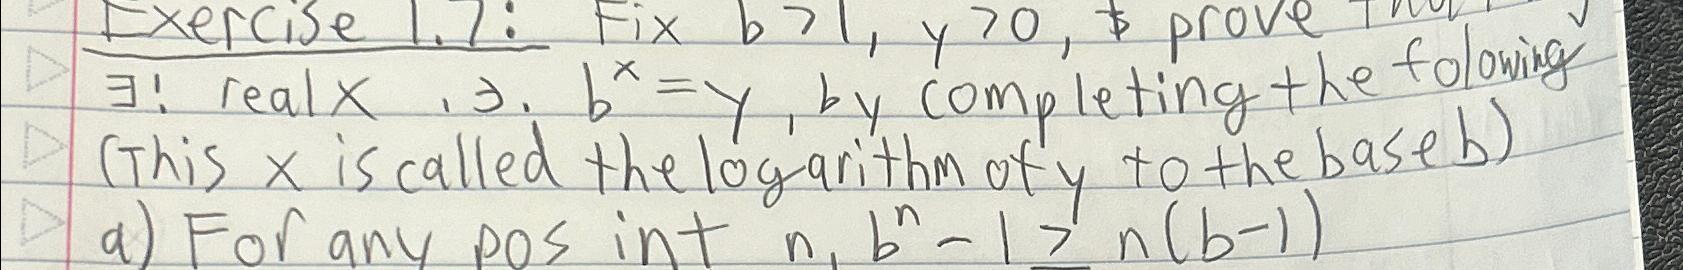 Exercise 1.7: Fix b>1, y>0, & prove that
∃! real x .∋. b^x = y, by completing the folowing
(This x is called the logarithm of y to the base b)
a) For any pos int n, b^n - 1 ≥ n(b-1)